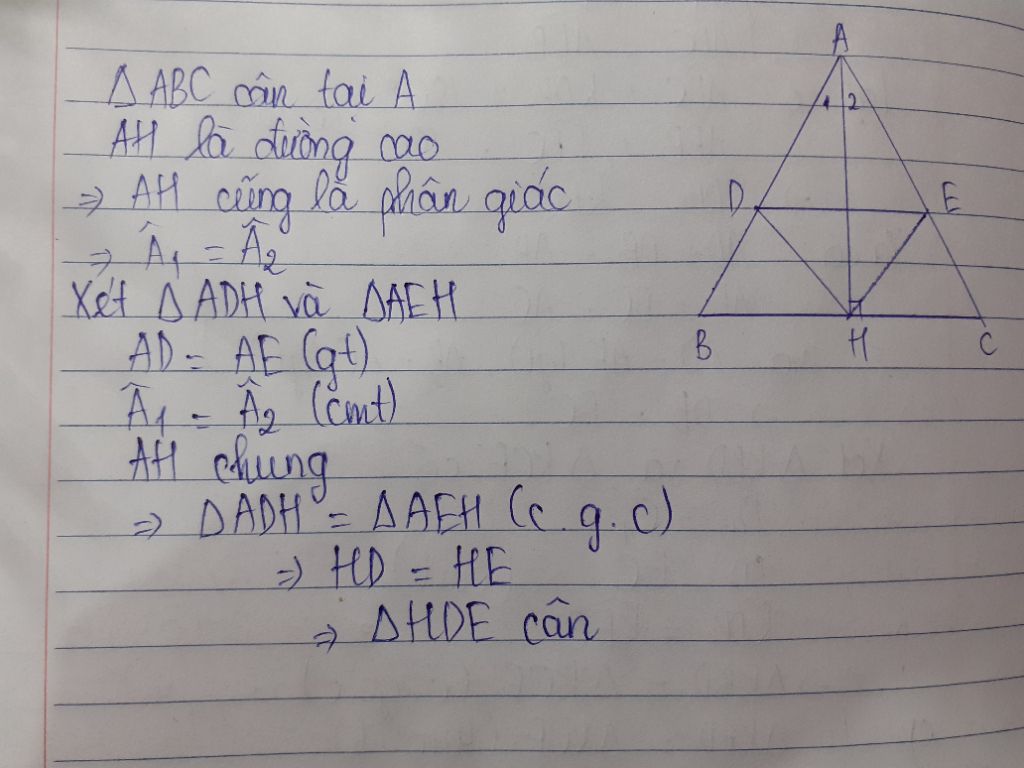 Δ ABC cân tại A
AH là đường cao
⇒ AH cũng là phân giác
⇒ Â₁ = Â₂
Xét Δ ADH và ΔAEH
AD = AE (gt)
Â₁ = Â₂ (cmt)
AH chung
⇒ ΔADH = ΔAEH (c.g.c)
⇒ HD = HE
⇒ ΔHDE cân
A
1 2
D E
B H C